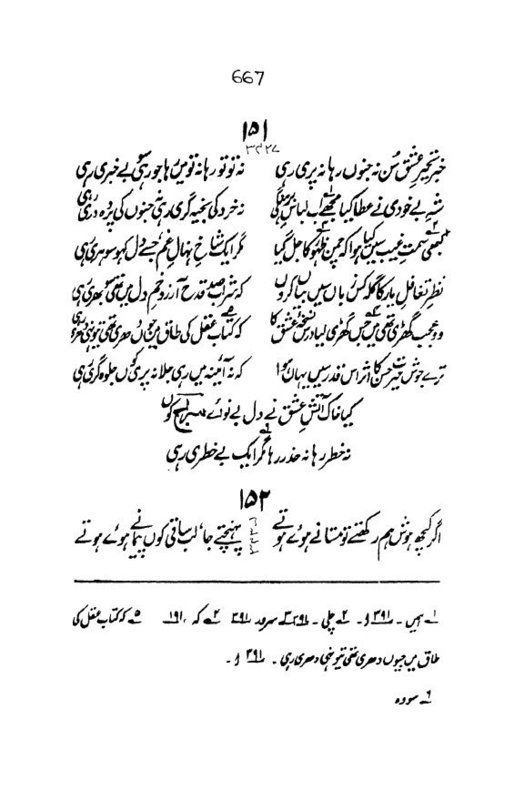 667
۱۵۱
۳۳۲۷
خبر تحیر عشق سن نہ جنوں رہا نہ پری رہی نہ تو تو رہا نہ تو میں رہا جو رہی سو بے خبری رہی
شہ بے خودی نے عطا کیا مجھے اب لباس برہنگی نہ خرد کی بخیہ گری رہی نہ جنوں کی پردہ دری رہی
کبھی سمت غیب سیں کیا ہوا کہ چمن ظہور کا جل گیا مگر ایک شاخ نہال غم جسے دل کہو سو ہری رہی
نظر تغافل یار کا گلہ کس زباں سیں بیاں کروں کہ شراب صد قدح آرزو خم دل میں تھی سو بھری رہی
وو عجب گھڑی تھی میں جس گھڑی لیا درس نسخۂ عشق کا کہ کتاب عقل کی طاق پر جوں دھری تھی تیونہی دھری رہی
ترے جوش حیرت حسن کا اثر اس قدر سیں یہاں ہوا کہ نہ آئینہ میں رہی جلا نہ پری کوں جلوہ گری رہی
کیا خاک آتش عشق نے دل بے نوائے سراج کوں
نہ خطر رہا نہ حذر رہا مگر ایک بے خطری رہی
۱۵۲
اگر کچھ ہوش ہم رکھتے تو مستانے ہوئے ہوتے پہنچتے جا لب ساقی کوں پیمانے ہوئے ہوتے
۱؎ ہیں۔ ۳۹۱ ۲؎ چلی۔ ۳۹۱ ۳؎ سرور ۳۹۱ ۴؎ کہ ۱۹۱ ۵؎ کہ کتاب عقل کی
طاق میں جیوں دھری تھی تیونہی دھری رہی۔ ۳۹۱
۶؎ سو وہ